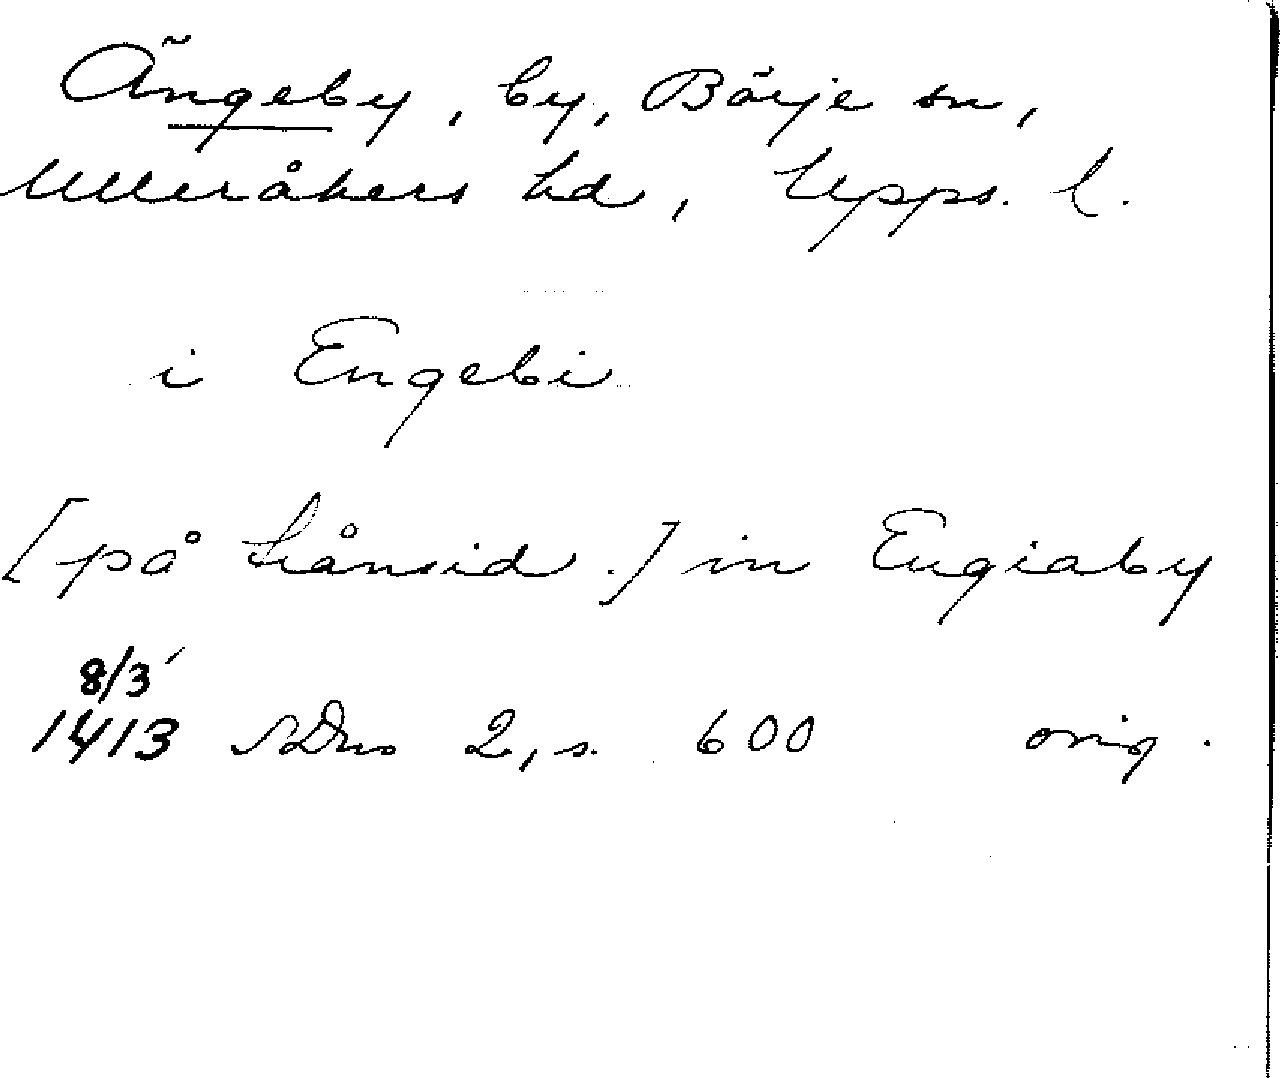 Ängeby, by, Börje sn,
Ulleråkers hd, Upps. l.
i Engebi
[på frånsid.] in Engiaby
8/3
1413 SDns 2, s. 600 orig.